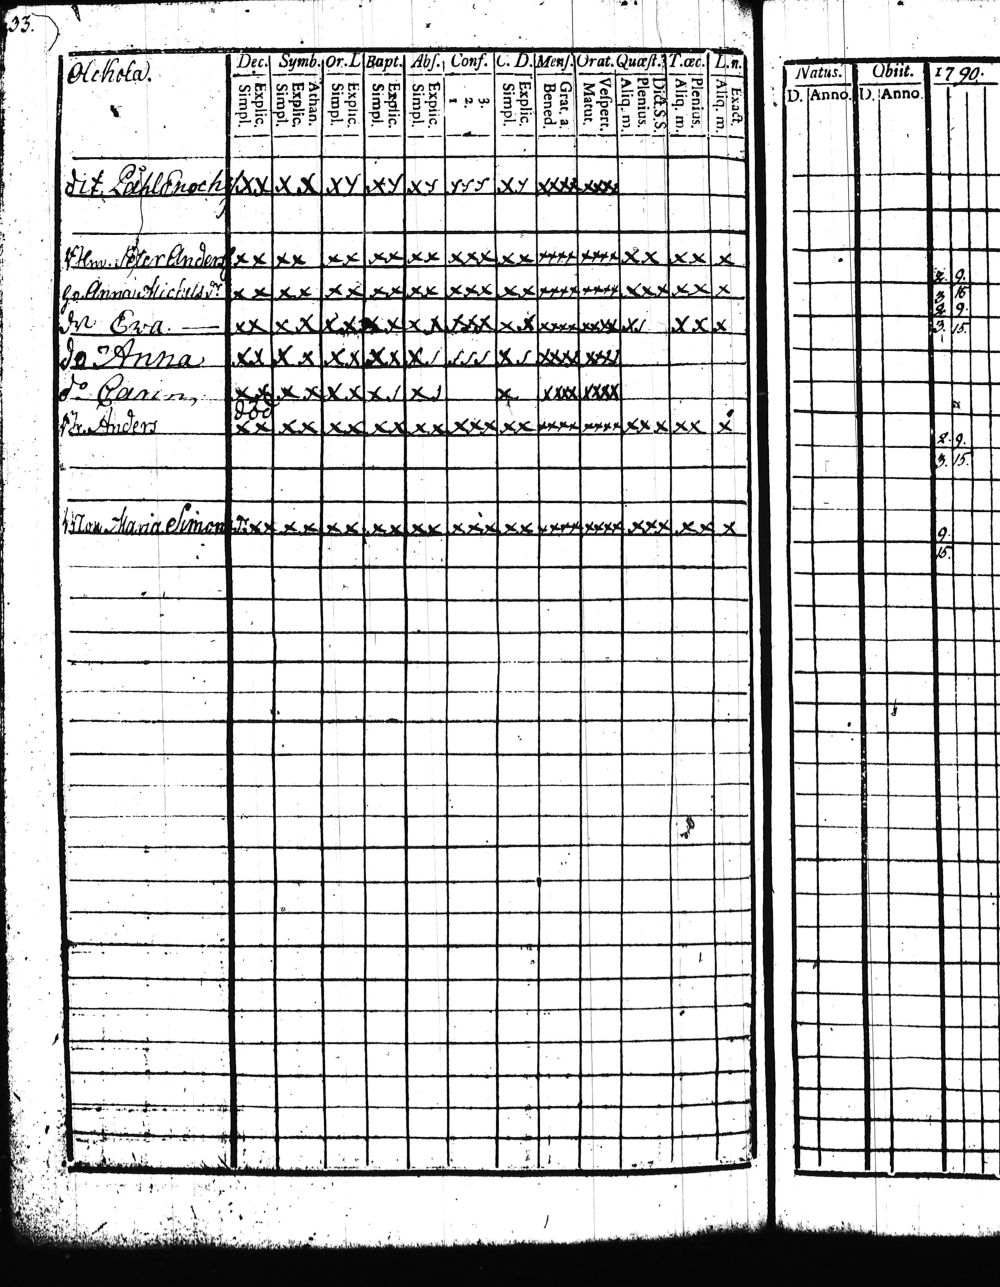 33.
Olckola.
Dec. Symb. Or. D Bapt. Abs. Conf. C. D. Mens. Orat. Quæst. T. œc. L. n.
Simpl. Explic. Simpl. Explic. Athan. Simpl. Explic. Simpl. Explic. Simpl. Explic. 1 2. 3. Simpl. Explic. Bened. Grat. a. Matut. Vespert. Aliq. m. Plenius. Dict. S.S. Aliq. m. Plenius. Aliq. m. Exact.
Natus. Obiit. 1790.
D. Anno. D. Anno.
dit. Påhl Enochs xx xx xy xy xy yyy xy xxxx xxxx
Peter Anders xx xx xx xx xx xxx xx xxxx xxxx xx xx x
2. 9.
Anna Michelsdr xx xx xx xx xx xxx xx xxxx xxxx xxx xx x
3. 15
dr Ewa. — xx xx xx xx xx xxx xx xxxx xxxx x/ xx x
2. 9.
3. 15.
do Anna xx xx xx xx x/ /// x/ xxxx xxxx
do Carin xx xx xx x/ x/ x xxxx xxxx
död
Anders xx xx xx xx xx xxx xx xxxx xxxx xxx xx x
2. 9.
3. 15.
Maria Simonsdr xx xx xx xx xx xxx xx xxxx xxxx xxx xx x
9.
15.